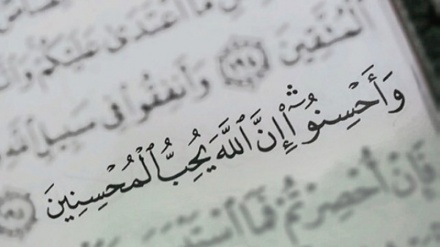 مَا ٱعْتَدَىٰ عَلَيْكُمْ
ٱلْمُتَّقِينَ ١٩٤ وَأَنفِقُوا۟ فِى سَبِيلِ ٱللَّهِ
وَأَحْسِنُوٓا۟ ۛ إِنَّ ٱللَّهَ يُحِبُّ ٱلْمُحْسِنِينَ
فَإِنْ أُحْصِرْتُمْ فَمَا ٱسْتَيْسَرَ